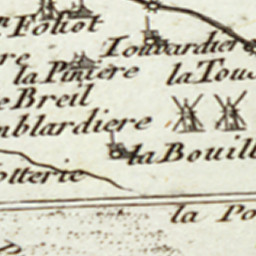 Foliot
Iouvardiere
la Piniere
la Tous
Breil
mblardiere
la Bouill
otterie
la Po